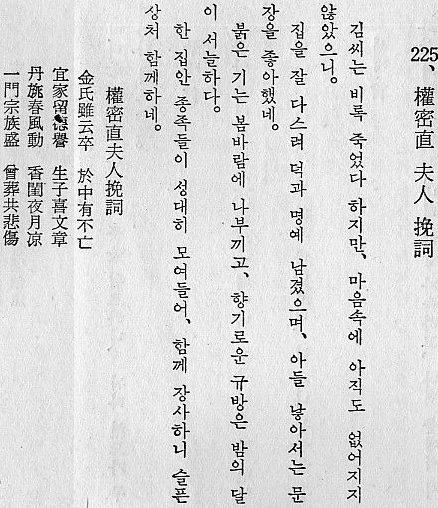 225、權密直 夫人 挽詞
김씨는 비록 죽었다 하지만、 마음속에 아직도 없어지지
않았으니。
집을 잘 다스려 덕과 명예 남겼으며、 아들 낳아서는 문
장을 좋아했네。
붉은 기는 봄바람에 나부끼고、 향기로운 규방은 밤의 달
이 서늘하다。
한 집안 종족들이 성대히 모여들어、 함께 장사하니 슬픈
상처 함께하네。
權密直夫人挽詞
金氏雖云卒 於中有不亡
宜家留德譽 生子喜文章
丹旐春風動 香閨夜月凉
一門宗族盛 會葬共悲傷